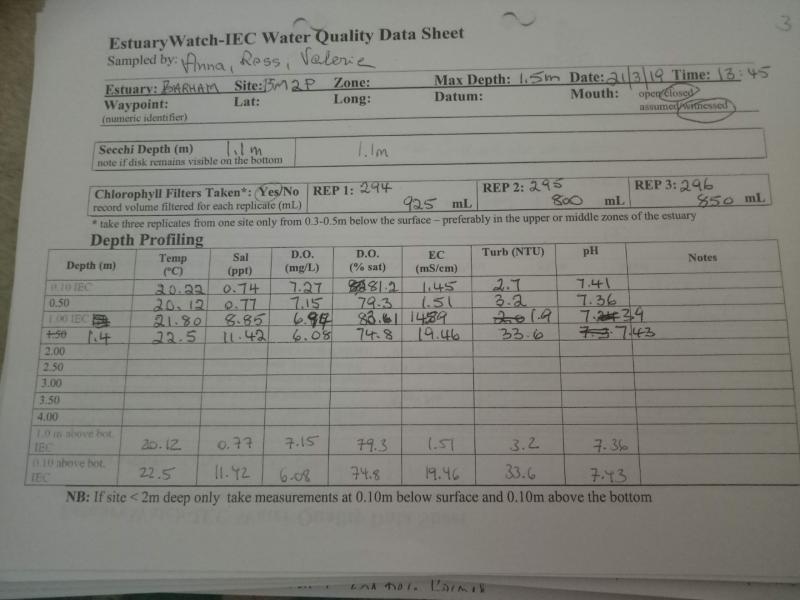 3
EstuaryWatch-IEC Water Quality Data Sheet
Sampled by: Anna, Ross, Valerie
Estuary: BARHAM Site: BM2P Zone: Max Depth: 1.5m Date: 21/3/19 Time: 13:45
Waypoint: Lat: Long: Datum: Mouth: open/closed
(numeric identifier) assumed/witnessed
Secchi Depth (m) 1.1m 1.1m
note if disk remains visible on the bottom
Chlorophyll Filters Taken*: Yes/No REP 1: 294 REP 2: 295 REP 3: 296
record volume filtered for each replicate (mL) 925 mL 800 mL 850 mL
* take three replicates from one site only from 0.3-0.5m below the surface – preferably in the upper or middle zones of the estuary
Depth Profiling
Depth (m) Temp (°C) Sal (ppt) D.O. (mg/L) D.O. (% sat) EC (mS/cm) Turb (NTU) pH Notes
0.10 IEC 20.22 0.74 7.27 81.2 1.45 2.7 7.41
0.50 20.12 0.77 7.15 79.3 1.51 3.2 7.36
1.00 IEC 21.80 8.85 83.61 1.9
1.50 1.4 22.5 11.42 6.08 74.8 19.46 33.6 7.3 7.43
2.00
2.50
3.00
3.50
4.00
1.0 m above bot. IEC 20.12 0.77 7.15 79.3 1.51 3.2 7.36
0.10 above bot. IEC 22.5 11.42 6.08 74.8 19.46 33.6 7.43
NB: If site < 2m deep only take measurements at 0.10m below surface and 0.10m above the bottom